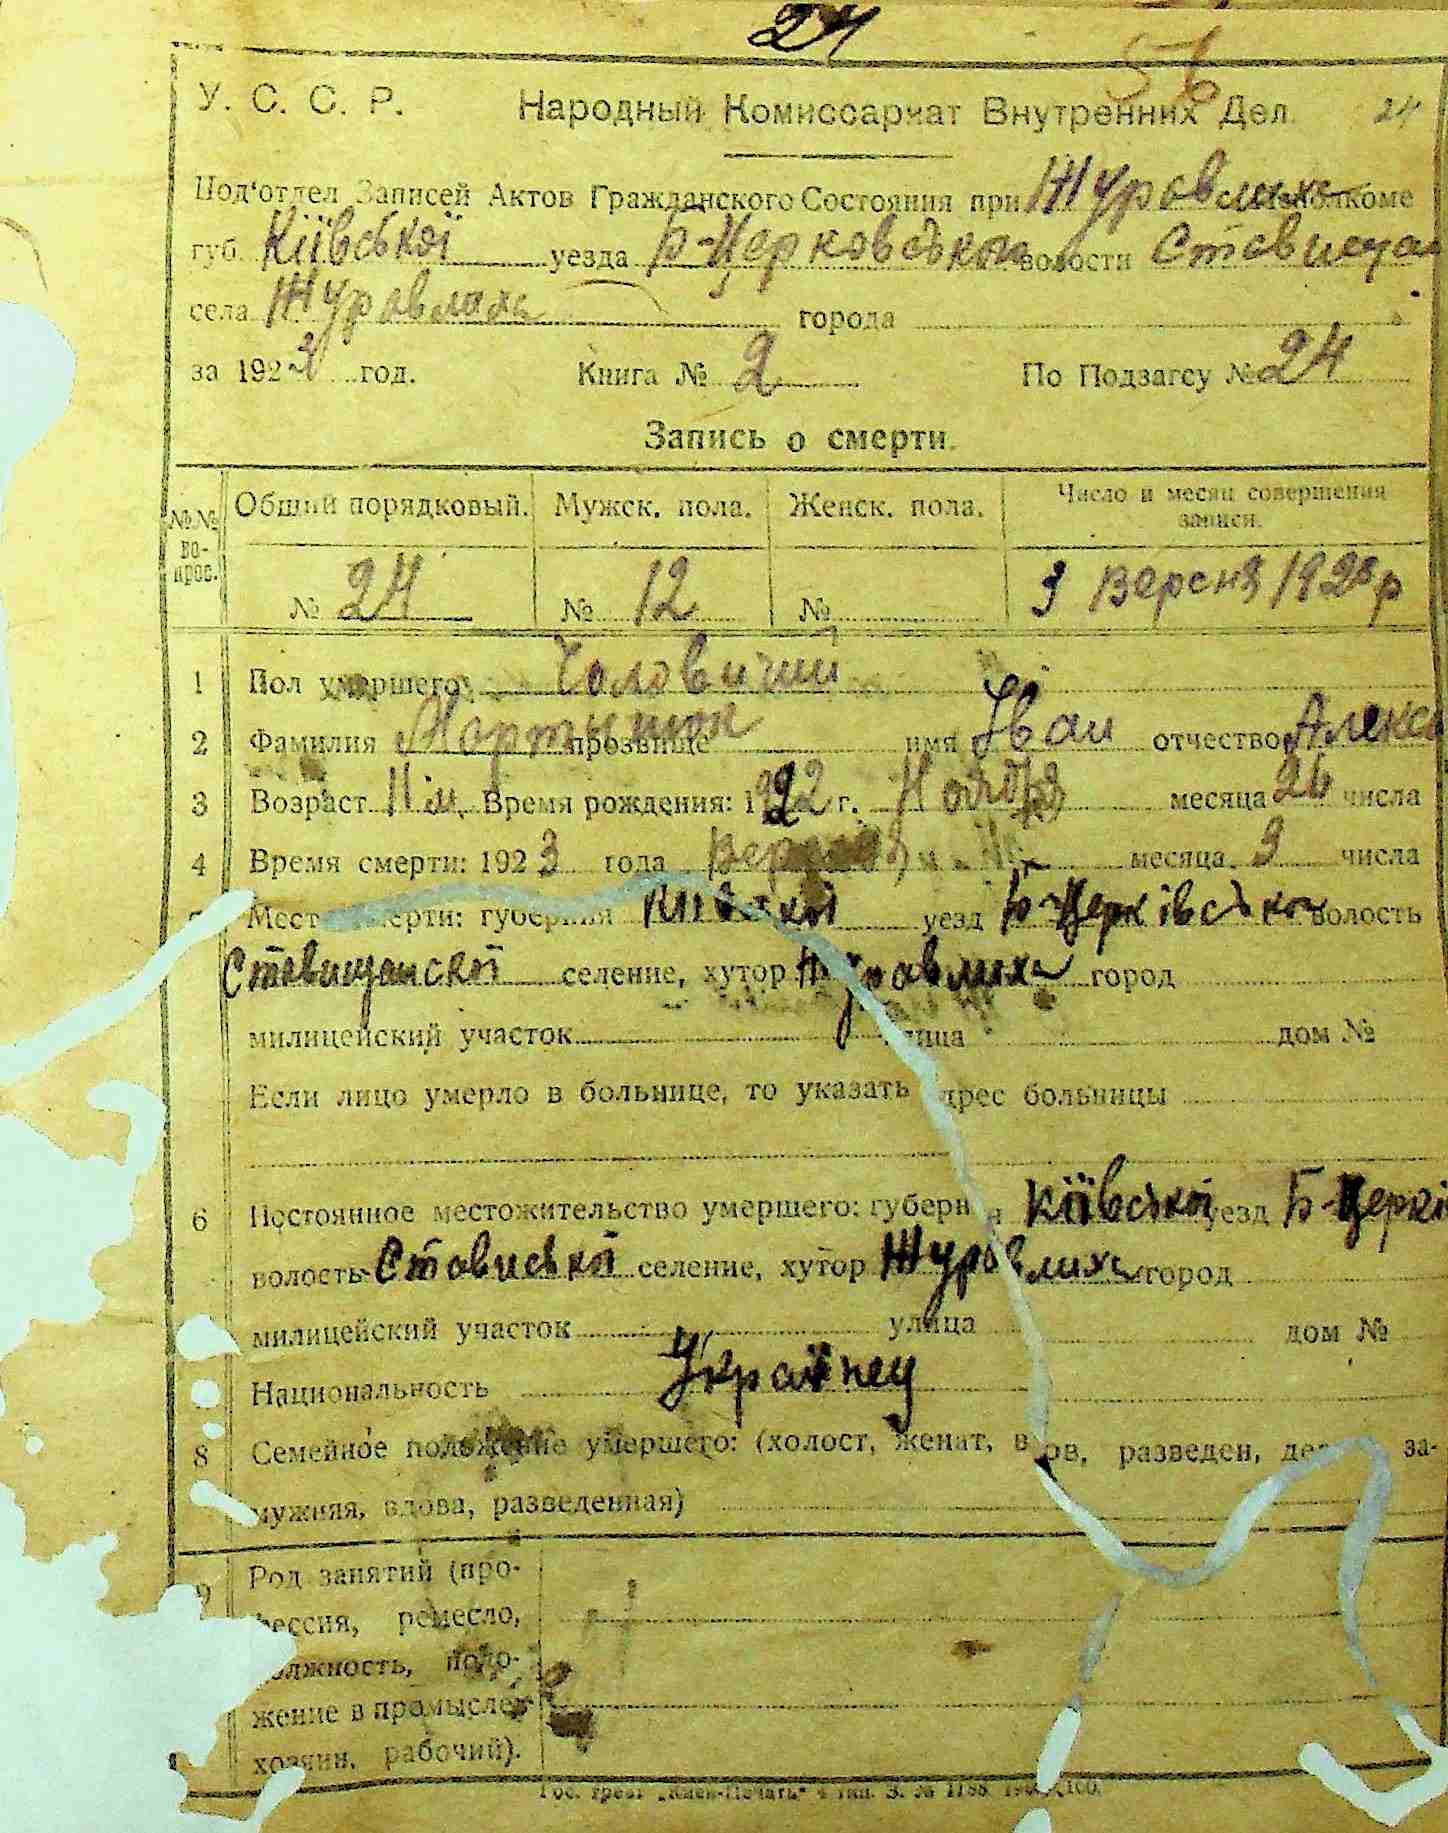 24
56
У. С. С. Р. Народный Комиссариат Внутренних Дел. 24
Под'отдел Записей Актов Гражданского Состояния при Журавлиха
губ. Київської уезда Б-Церковської волости Ставищан
села Журавлиха города
за 1923 год. Книга № 2 По Подзагсу № 24
Запись о смерти.
№№ вопрос. Общий порядковый. Мужск. пола. Женск. пола. Число и месяц совершения записи.
№ 24 № 12 № 3 Вересня 1923 р
1 Пол умершего Чоловичий
2 Фамилия прозвище имя Іван отчество Алекс
3 Возраст 11 м. Время рождения: 1922 г. Ноября месяца 26 числа
4 Время смерти: 1923 года месяца 3 числа
Мест смерти: губерния Київської уезд Б-Церківської волость
Ставищанскої селение, хутор Журавлиха город
милицейский участок улица дом №
Если лицо умерло в больнице, то указать адрес больницы
6 Постоянное местожительство умершего: губерн я Київської уезд Б-Церкі
волость Стависької селение, хутор Журавлиха город
милицейский участок улица дом №
Национальность Українец
8 Семейное положение умершего: (холост, женат, в ов, разведен, де за-
мужняя, вдова, разведенная)
9 Род занятий (про-
фессия, ремесло,
должность, поло-
жение в промысле
хозяин, рабочий).
Гос. трест „Киев-Печать“ 4 тип. З. № 1188